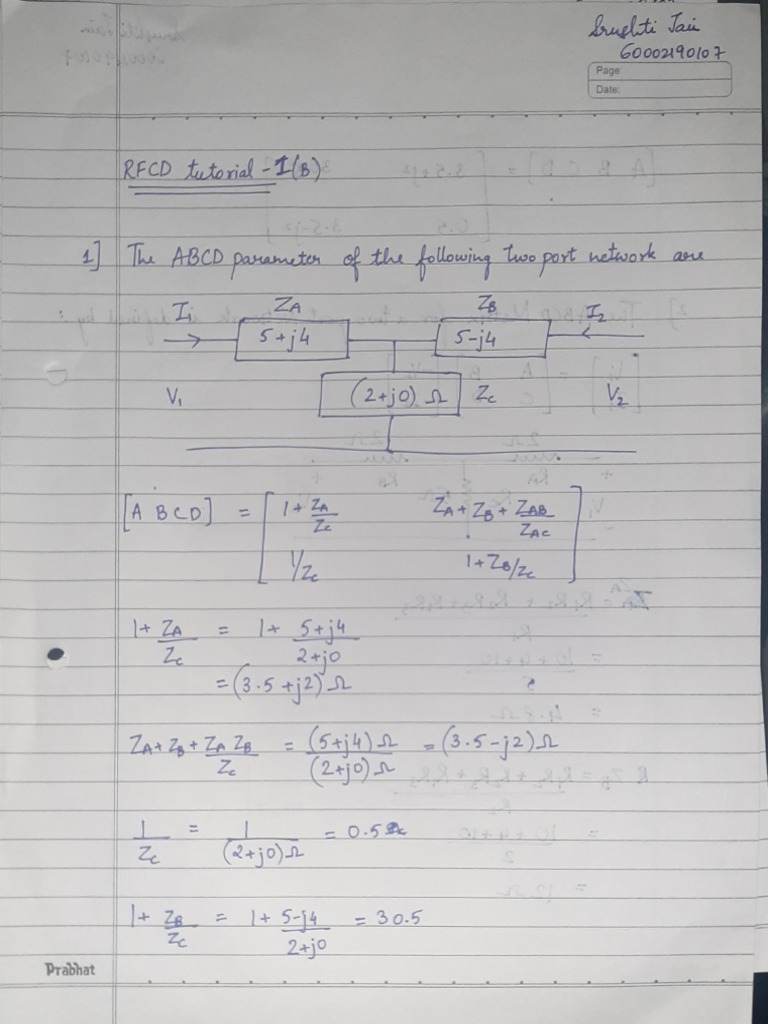 Srushti Jain
60002190107
Page:
Date:
RFCD tutorial - 1(B)
1] The ABCD parameter of the following two port network are
I₁ ZA ZB I₂
5+j4 5-j4
V₁ (2+j0) Ω Zc V₂
[A B C D] = [ 1 + ZA/Zc ZA + ZB + ZAB/ZAC
1/Zc 1 + ZB/Zc ]
1 + ZA/Zc = 1 + (5+j4)/(2+j0)
= (3.5 + j2) Ω
ZA + ZB + ZA ZB/Zc = (5+j4) Ω/(2+j0) Ω = (3.5 - j2) Ω
1/Zc = 1/(2+j0) Ω = 0.5
1 + ZB/Zc = 1 + (5-j4)/(2+j0) = 30.5
Prabhat